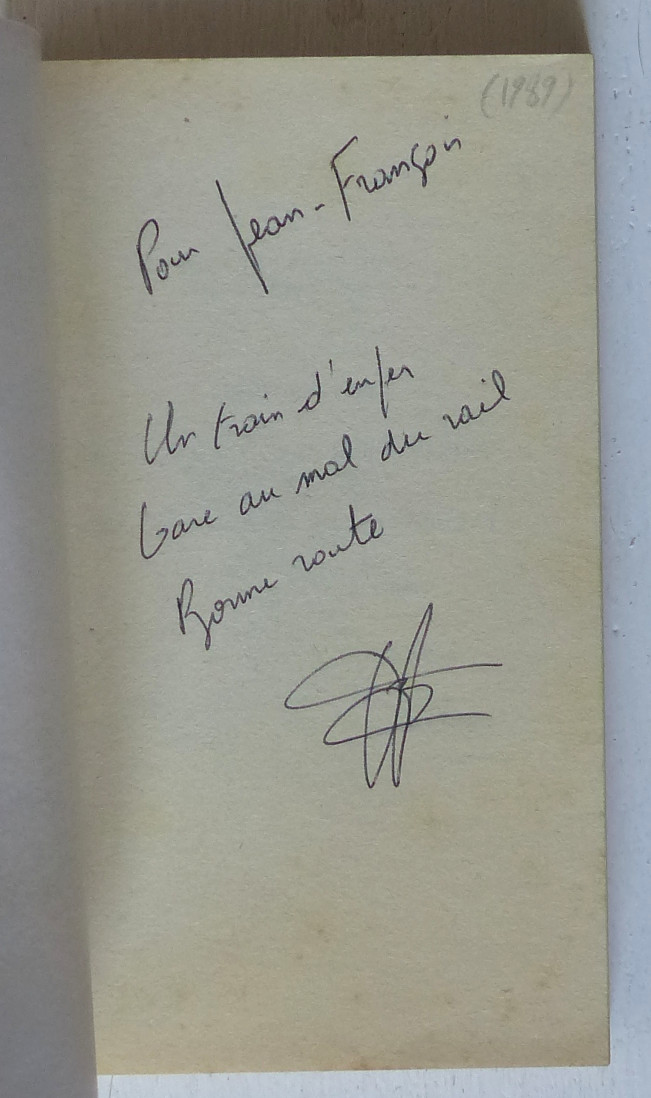 (1989)
Pour Jean-François
Un train d'enfer
Gare au mal du rail
Bonne route